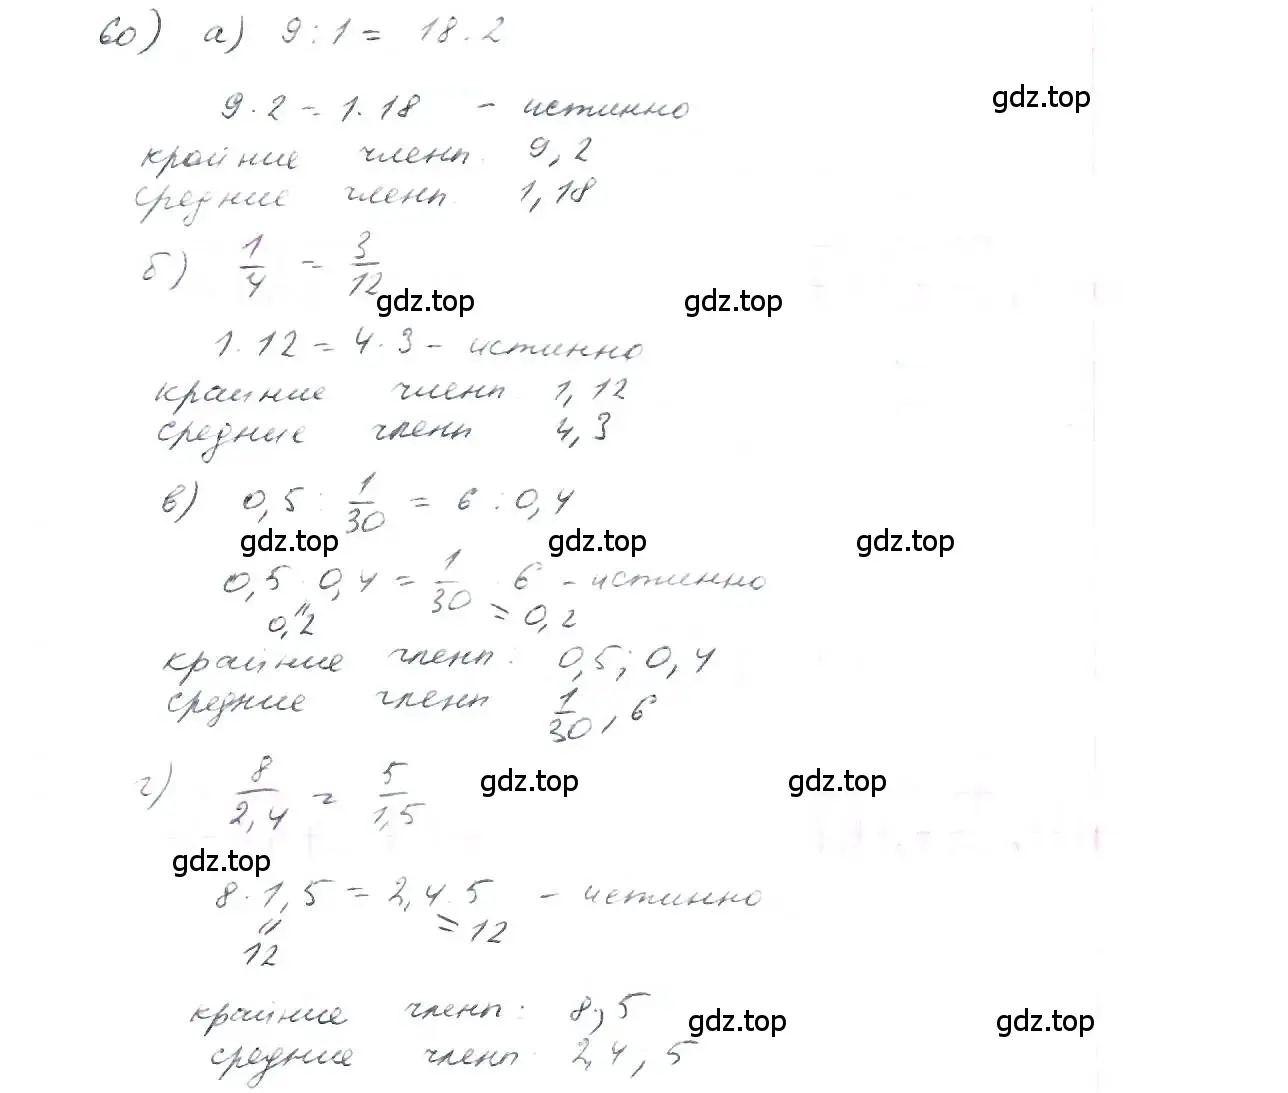 60) а) 9 : 1 = 18 . 2
9 · 2 = 1 · 18 - истинно
gdz.top
крайние члены 9, 2
средние члены 1, 18
б) 1/4 = 3/12
gdz.top gdz.top
1 · 12 = 4 · 3 - истинно
крайние члены 1, 12
средние члены 4, 3
в) 0,5 : 1/30 = 6 : 0,4
gdz.top gdz.top gdz.top
0,5 · 0,4 = 1/30 · 6 - истинно
0,2 = 0,2
крайние члены: 0,5; 0,4
средние члены 1/30, 6
г) 8/2,4 = 5/1,5
gdz.top gdz.top
gdz.top
8 · 1,5 = 2,4 · 5 - истинно
12 = 12
крайние члены: 8; 5
gdz.top gdz.top
средние члены 2,4, 5